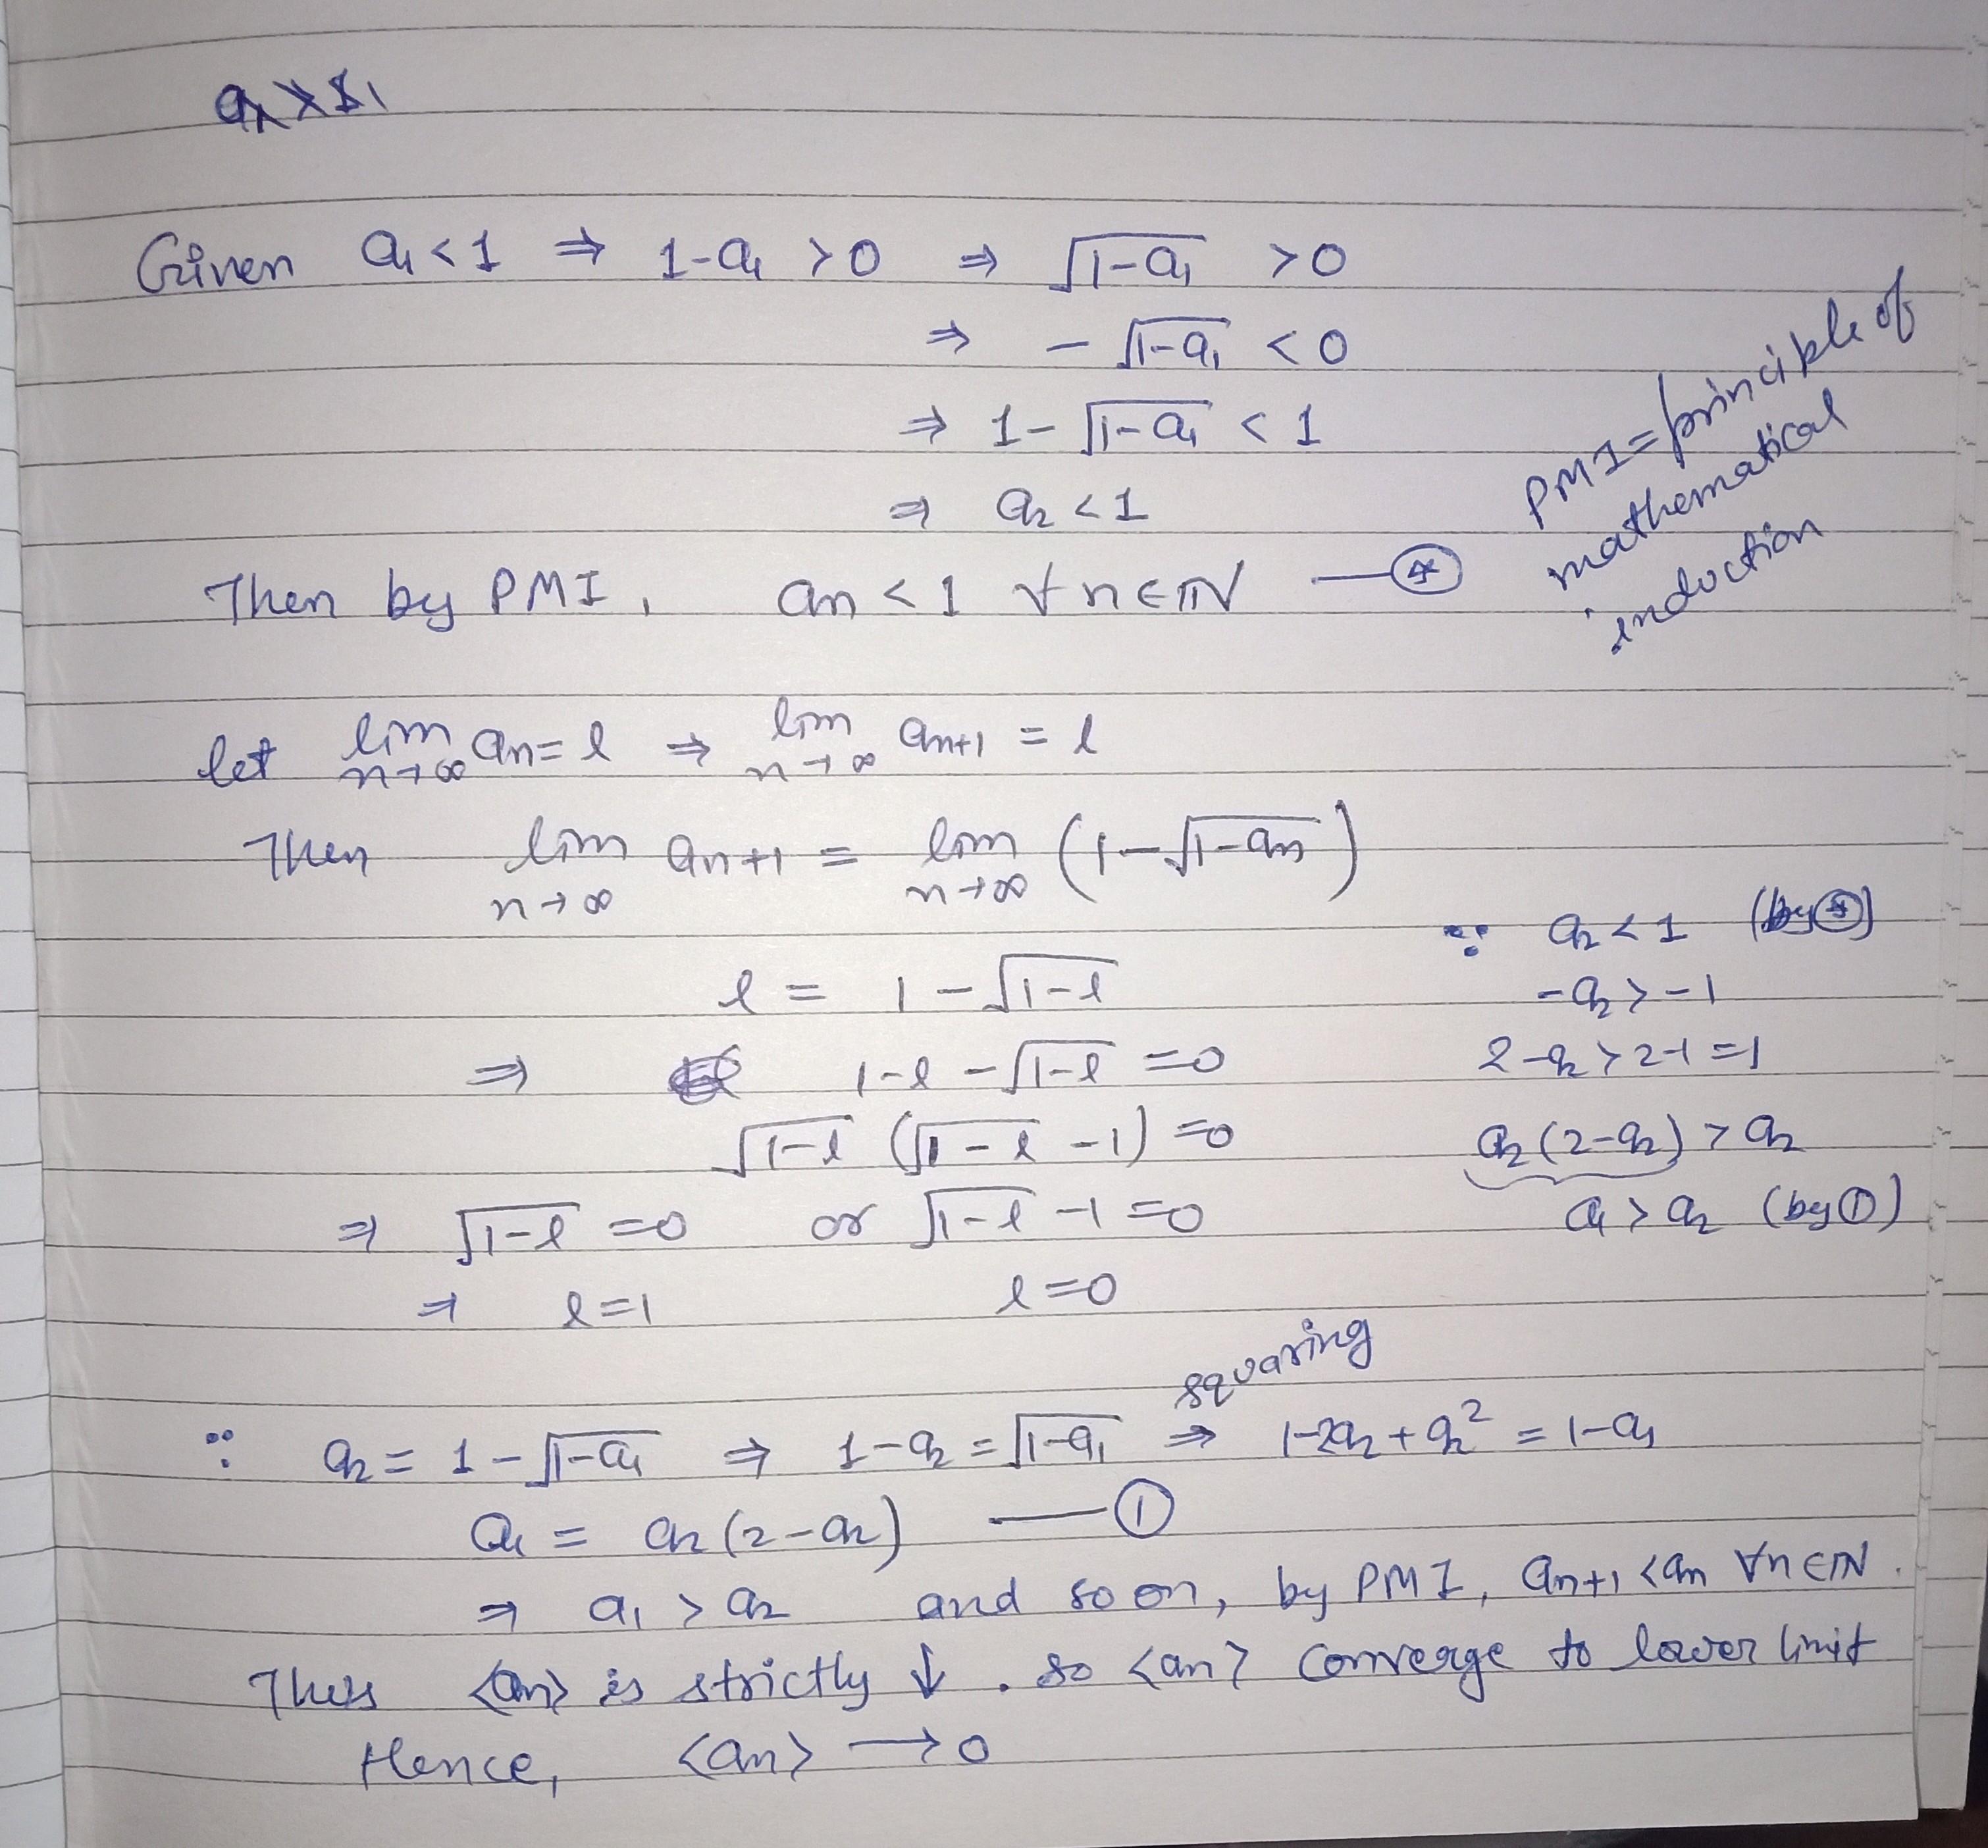 Given a₁ < 1 ⇒ 1-a₁ > 0 ⇒ √(1-a₁) > 0
⇒ -√(1-a₁) < 0
⇒ 1-√(1-a₁) < 1
⇒ a₂ < 1
PMI = principle of
mathematical
induction
Then by PMI, an < 1 ∀ n ∈ ℕ —(*)
let lim n→∞ an = l ⇒ lim n→∞ an+1 = l
Then lim n→∞ an+1 = lim n→∞ (1-√(1-an))
l = 1-√(1-l)
⇒ 1-l-√(1-l) = 0
√(1-l) (√(1-l) -1) = 0
⇒ √(1-l) = 0 or √(1-l) -1 = 0
⇒ l=1 l=0
∵ a₂ < 1 (by (*))
-a₂ > -1
2-a₂ > 2-1 = 1
a₂(2-a₂) > a₂
a₁ > a₂ (by ①)
squaring
∵ a₂ = 1-√(1-a₁) ⇒ 1-a₂ = √(1-a₁) ⇒ 1-2a₂+a₂² = 1-a₁
a₁ = a₂(2-a₂) —①
⇒ a₁ > a₂ and so on, by PMI, an+1 < an ∀n ∈ ℕ.
Thus <an> is strictly ↓. so <an> converge to lower limit
Hence, <an> → 0